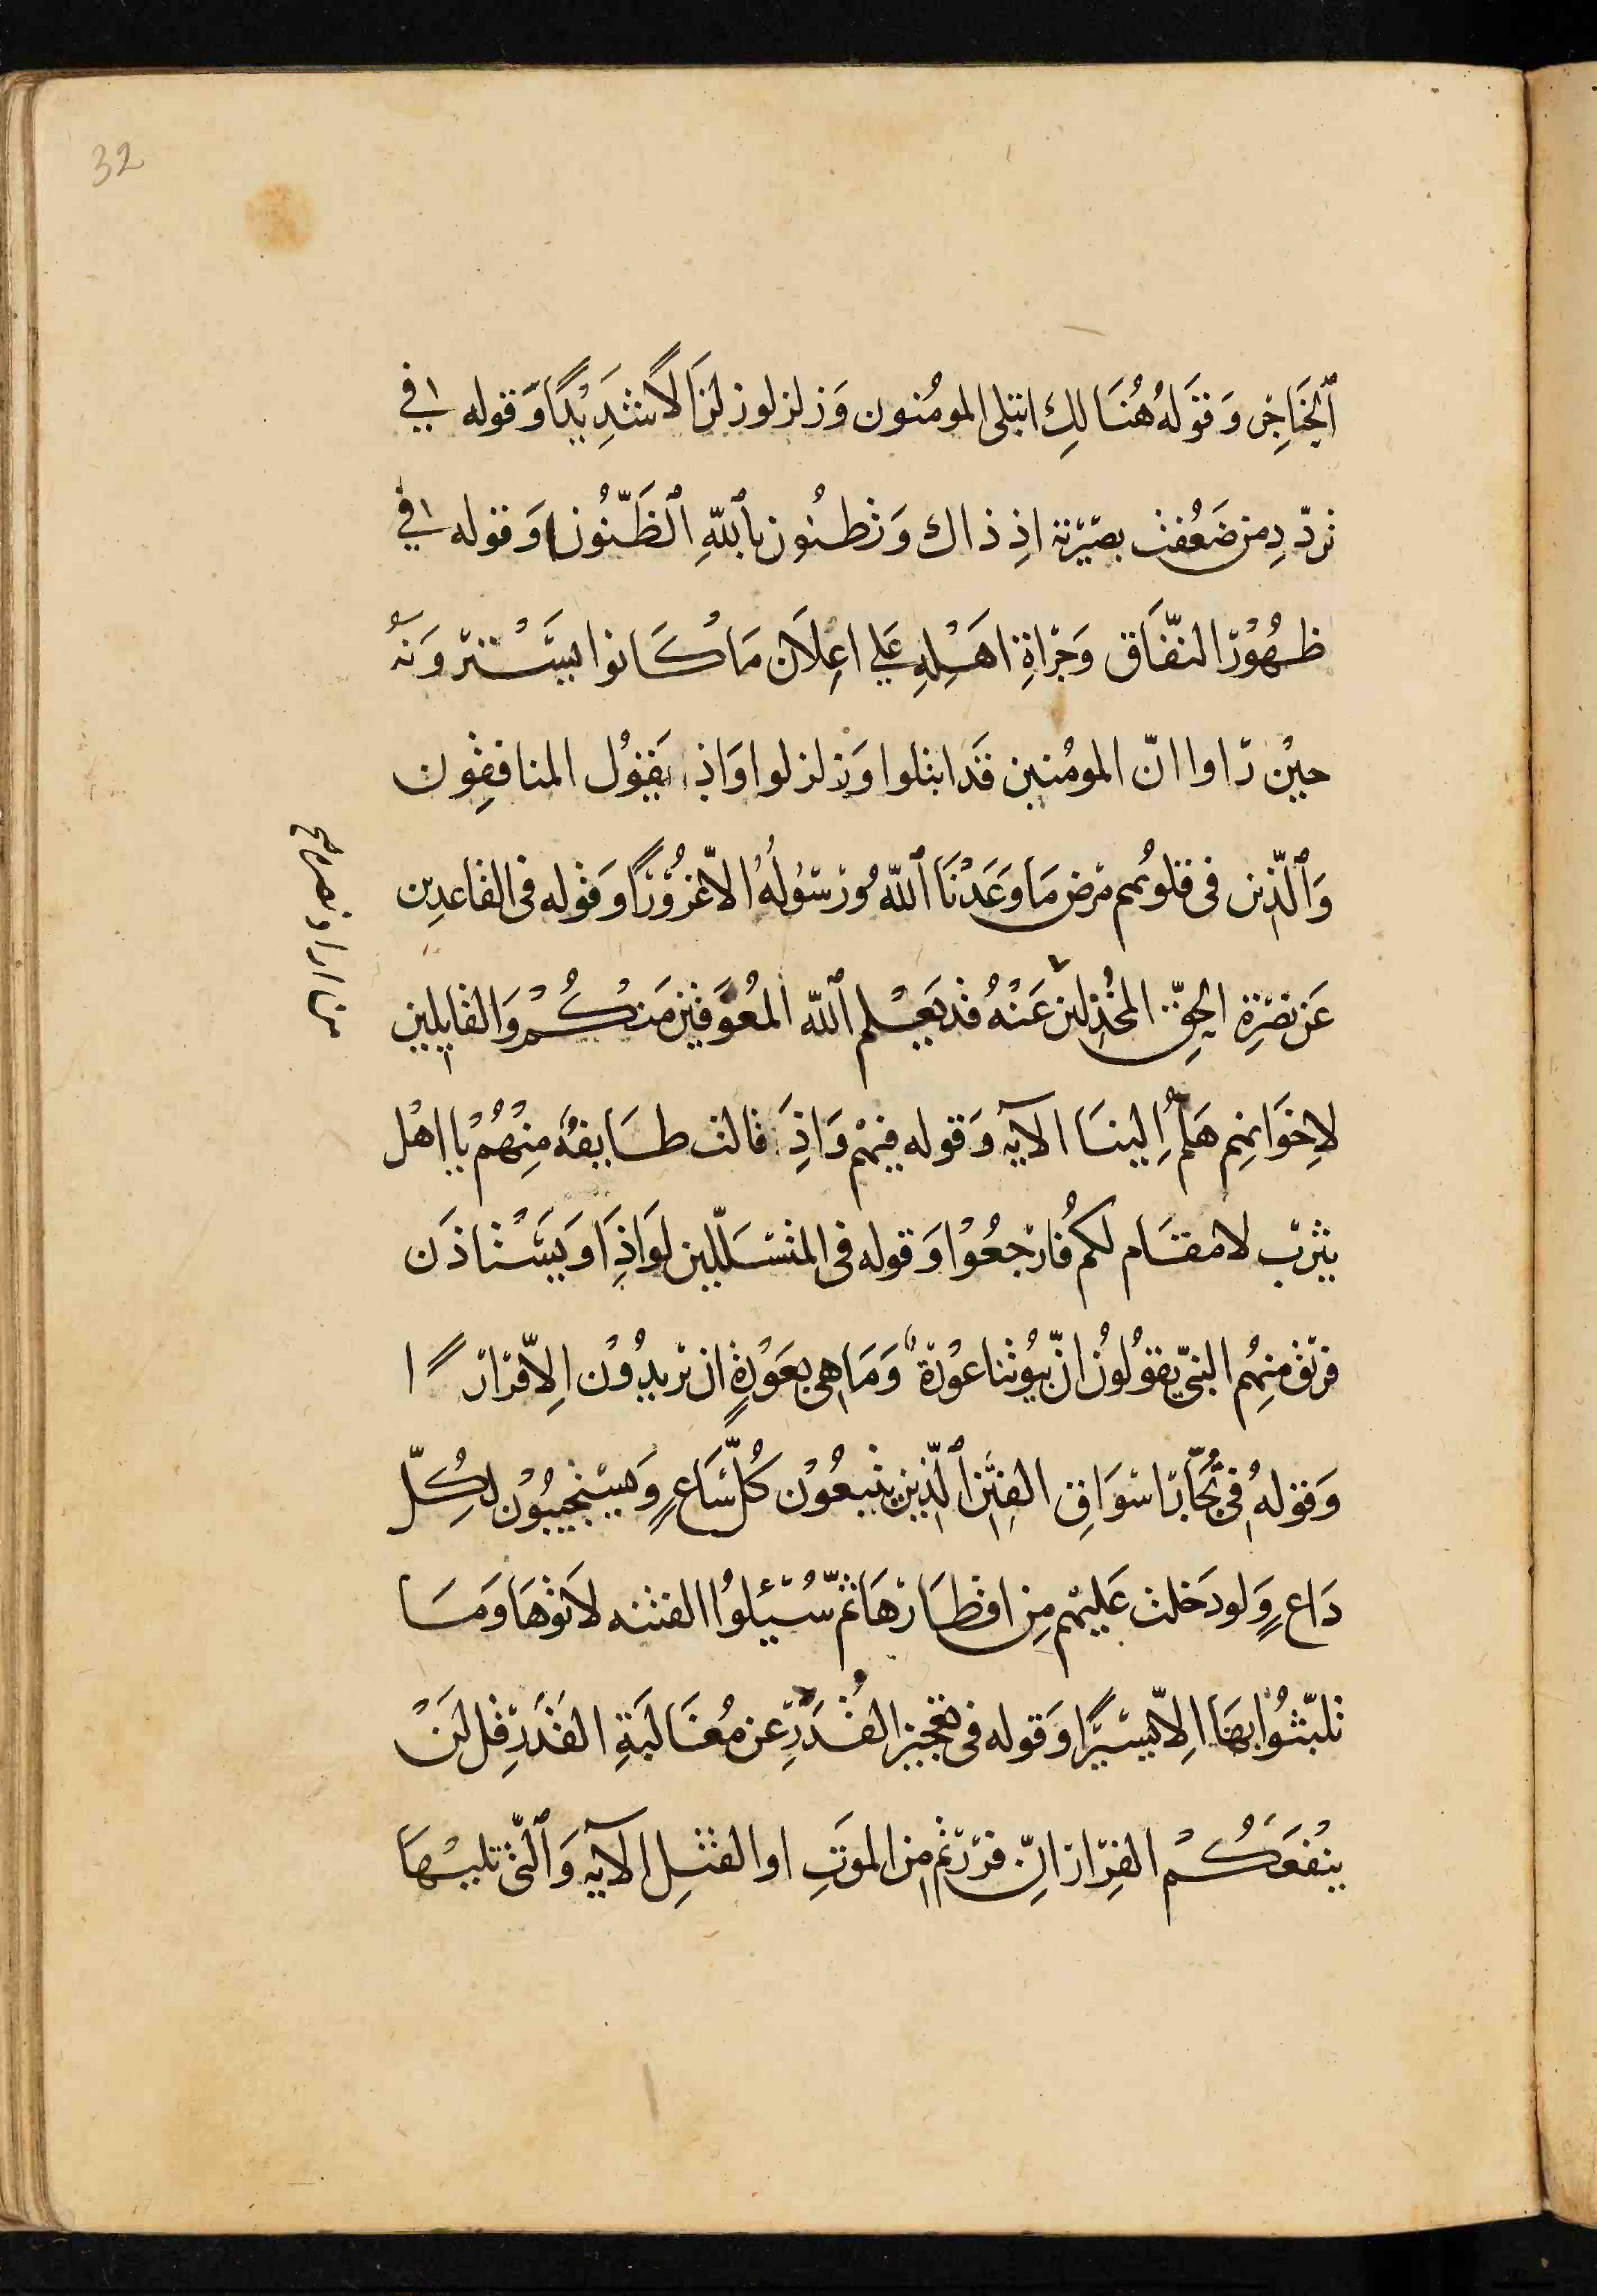 32
ٱلحَنَاجِر وَقوَلهُ هُنَالِكَ ابتلى المومُنون وَزلزلوزلزَالًا شَدِيْدًا وَقوله في
تردّدِ من ضَعُفت بصيْرته اذِ ذاك وَتظنُون بٱللهِ ٱلظَّنُّونا وَقوله في
ظهُوْر النفّاق وَجرْاةِ اهَلِهِ عَلى اعِلَان مَا كَانوا يسَتْترُونَهُ
حيْن رَاوا انّ المومُنين قَد ابتلوا وَزلزلوا وَاذِ يَقوُل المنافقِون
وَٱلّذين في قلوُبهم مرَض مَا وَعَدْنَا ٱللهُ وَرَسوُلهُ الاّ غرُوْرًا وَقوله في القاعدِين
عَن نصْرةِ الحِقّ المُخْذِلين عَنْهُ قد يَعْلم ٱلله المُعَوّقيْن مَنكُمْ وَالقايلِين
لاِخوَانهِم هَلمُ اِلينَا الآيه وَقوله فيهْم وَاذِ قالت طَايفةٌ مِنْهُمْ يا اهْل
يثرْب لا مقَام لكم فارْجعُوْا وَقوله في المتسَلّلين لوَاذِا وَيسَتْاذَن
فرْيق منِهُم النبيّ يقوُلُون انّ بيُوُتنا عوْرَةٌ وَمَا هي بعَوْرةٍ ان يرْيدُوْن اِلاّ فرْارًا
وَقولهُ في تُجّار اسْوَاق الفِتَن ٱلّذين يتبعُوْن كُلّ سَاعٍ وَيسْتجيْبوُن لكِلّ
دَاعٍ وَلو دَخلت عَليهْم مِن اقطَارْهَا ثمّ سُئِلوُا الفتنه لآتوْهَا وَمَا
تلبّثوُا بهَا اِلاّ يسيْرًا وَقوله في تعجْيز القُدَرِ عن مُغَالبَةِ القَدَر قل لَنْ
ينْفعَكُمُ الفِرْار انِ فرَرْتم من الموَتِ او القتْلِ الآيه وَٱلتي تليْهَا